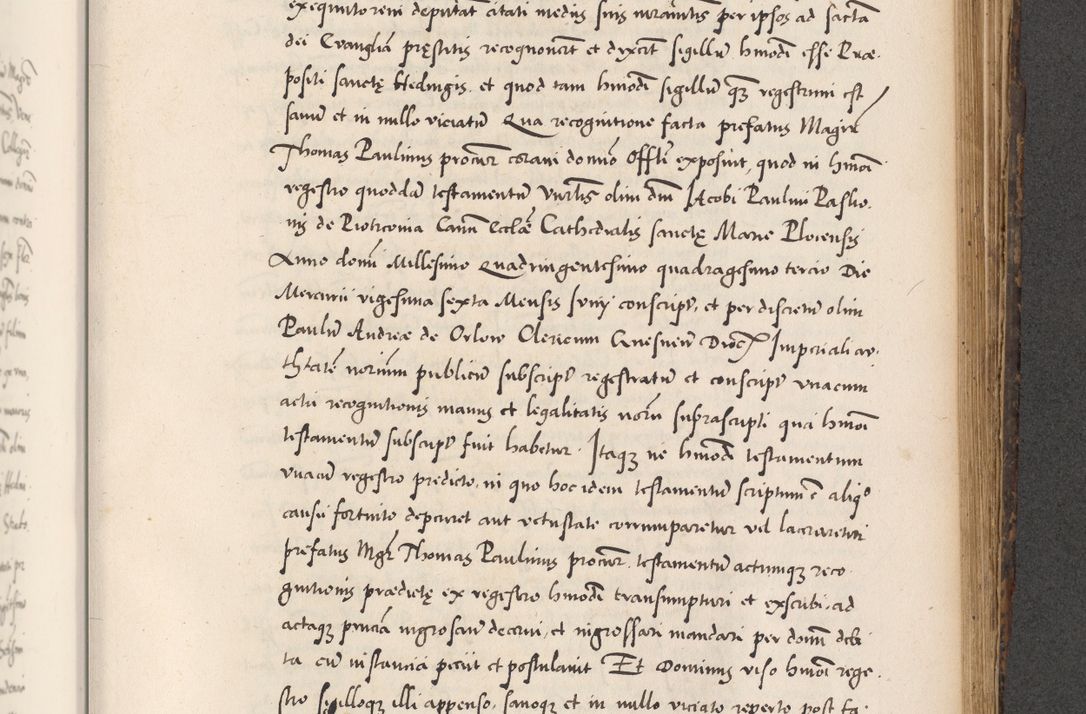 exequutoreni deputat citati mediis suis iuramentis per ipsos ad sacta
dei Evanglia pręstitis recognoverūt et dixerūt sigillū hmōdi esse Præ-
positi sanctę Hedvigis. et quod tam hmōdi sigillū quā regestrum est
sanū et in nullo viciatū Qua recognitione facta prefatus Magr̄
Thomas Paulinus procur coram domno Offli exposuit, quod in hmōi
regestro quoddā testamentū olim dm̄ Jacobi Paulini Paslio-
nis de Piotrcovia Cann Ecclæ Cathedralis sanctę Marie Plocensis
Anno domī Millesimo Quadringentesimo quadragesimo tercio Die
Mercurii vigesima sexta Mensis Junij conscrip, et per discretū olim
Paulū Andreæ de Orlow Clericum Gnesneñ Dioc Imperiali au-
thtate notarium publicū subscrip regestratū et conscrip unacum
actu recognitionis manus et legalitatis noru suprascripti qui hmōi
testamentū subscrip fuit habetur. Itaq ne hmōdi testamentum
unacū regestro predicto, in quo hoc idem testamentū scriptum ē aliqo
casu fortuito deperiret aut vetustate corrumparetur vel laceraretur
prefatus Mgr Thomas Paulinus procur. testamentū actumq reco-
gnitionis prædictę ex regestro hmōdi transumptum et exscribi, ad
actaq pncia ingrosari decerni, et ingrossari mandari per domū debi
ta cū instancia peciit et postulavit Et Dominus viso hmōi rege-
stro sigilloq illi appenso, sanoq et in nullo viciato reperto post fa-